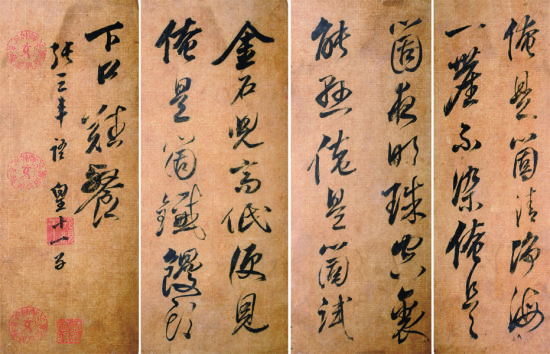 俺是箇清淨海
一塵不染俺是
箇夜明珠空裏
能懸俺是箇試
金石兒高低便見
俺是箇鐵饅頭
下口難餐
張三丰語 皇十一子